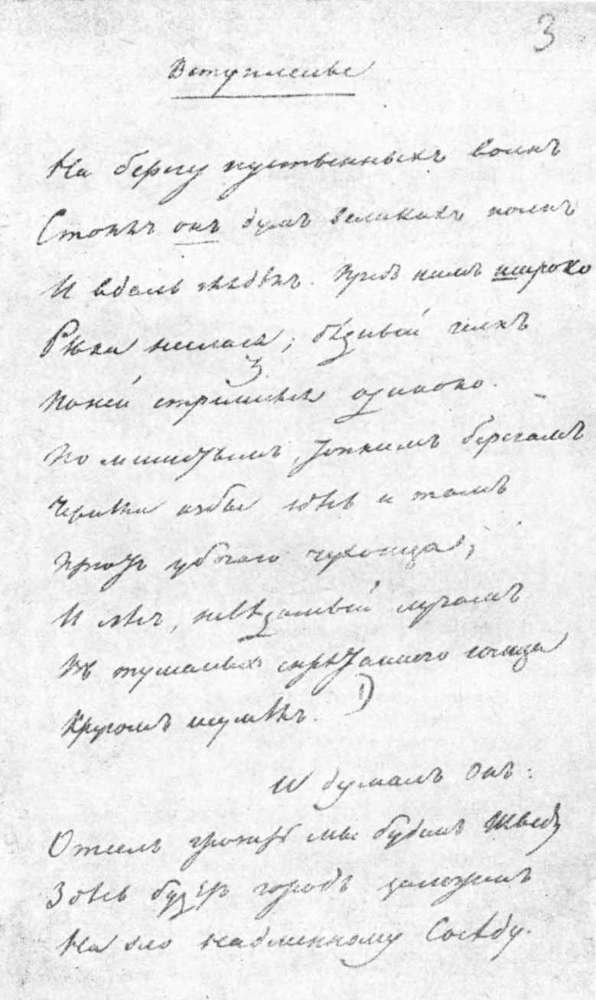 3
Вступленье
На берегу пустынныхъ волнъ
Стоялъ онъ думъ великихъ полнъ
И вдаль глядѣлъ. Предъ нимъ широко
Рѣка неслася; бѣдный челнъ
По ней стремился одиноко.
По мшистымъ, топкимъ берегамъ
Чернѣли избы здѣсь и тамъ
Пріютъ убогаго чухонца;
И лѣсъ, невѣдомый лучамъ
Въ туманѣ спрятанного солнца
Кругомъ шумѣлъ. 1)
И думалъ Онъ:
Отсель грозить мы будемъ Шведу
Здѣсь будетъ городъ заложенъ
На зло надменному Сосѣду.